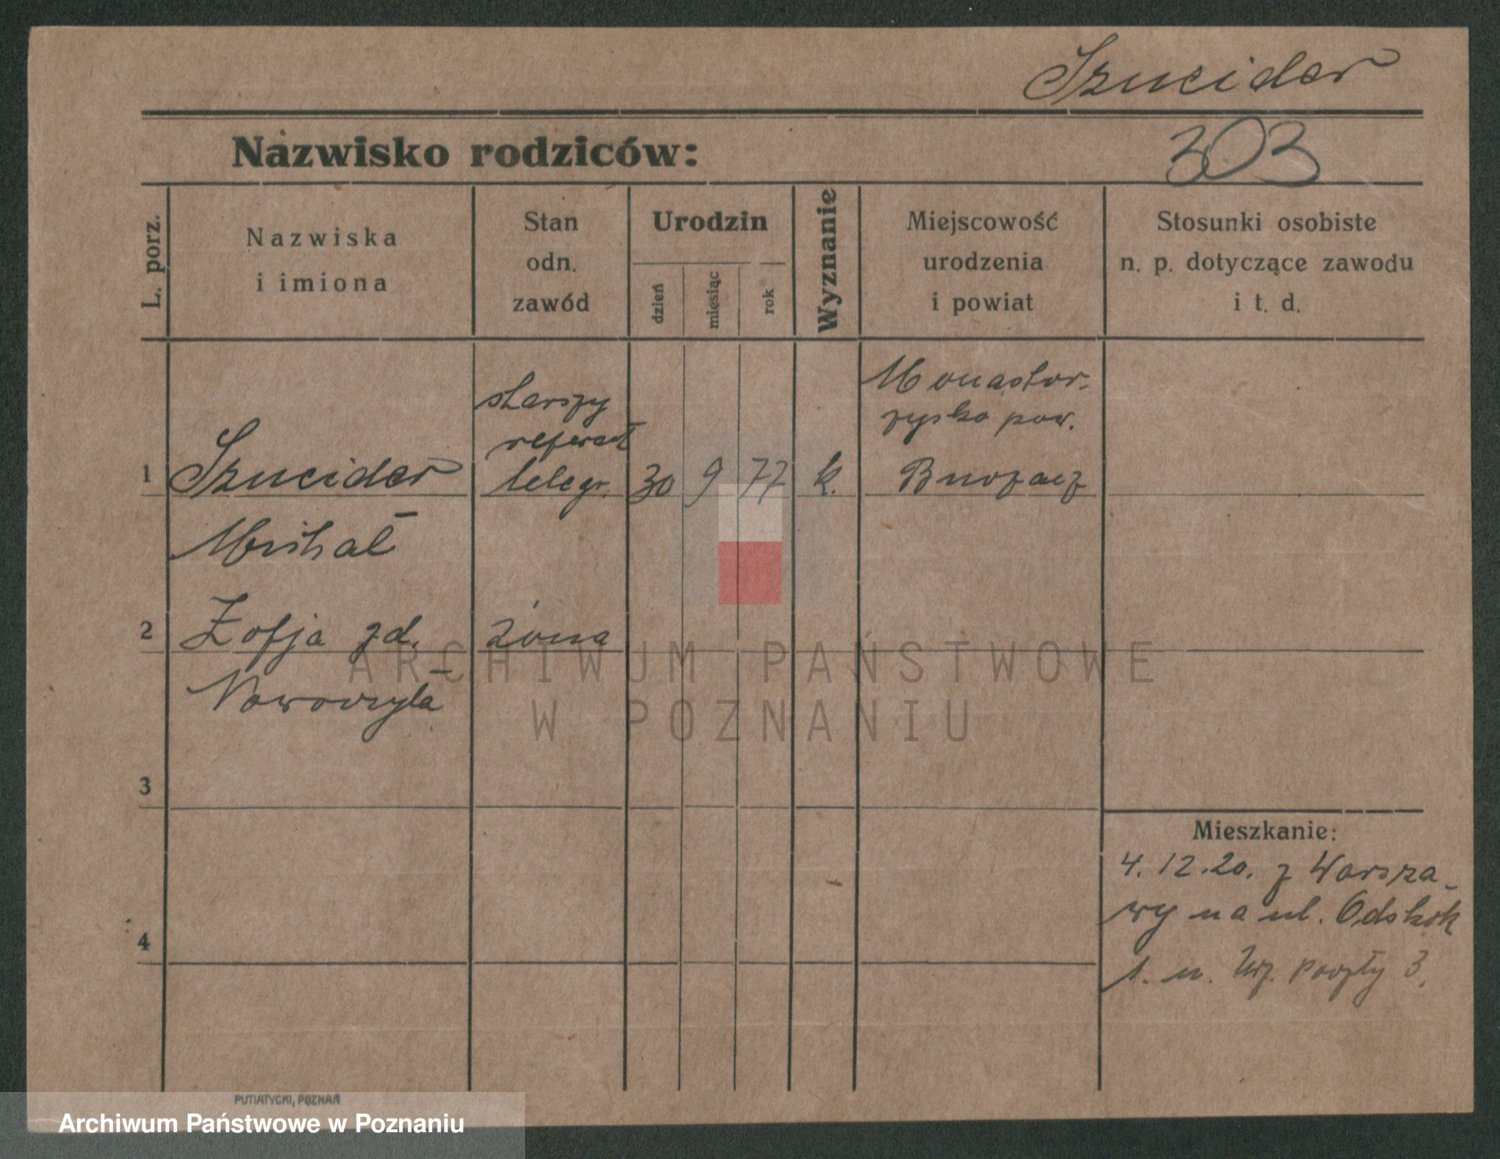 Szneider
303
Nazwisko rodziców:
L. porz.
Nazwiska
i imiona
Stan
odn.
zawód
Urodzin
dzień
miesiąc
rok
Wyznanie
Miejscowość
urodzenia
i powiat
Stosunki osobiste
n. p. dotyczące zawodu
i t. d.
1
Szneider
Michał
starszy
referent
telegr.
30 9 77
k.
Monaster-
zyska pow.
Buczacz
2
Zofja zd.
żona
3
4
Mieszkanie:
4.12.20. z Warsza-
wy na ul.
poczty 3.
PUTIATYCKI, POZNAŃ
ARCHIWUM PAŃSTWOWE
W POZNANIU
Archiwum Państwowe w Poznaniu